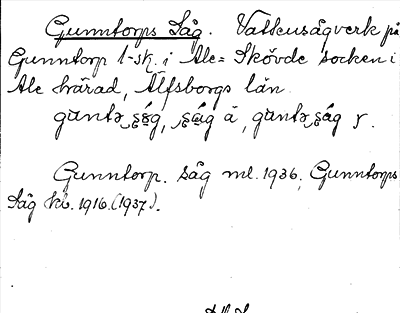 Gunntorps Såg. Vattensågverk på
Gunntorp 1-sk. i Ale-Skövde socken i
Ale härad, Älfsborgs län.
Gunntorp. såg ml. 1936, Gunntorps
Såg kb. 1916. (1937).